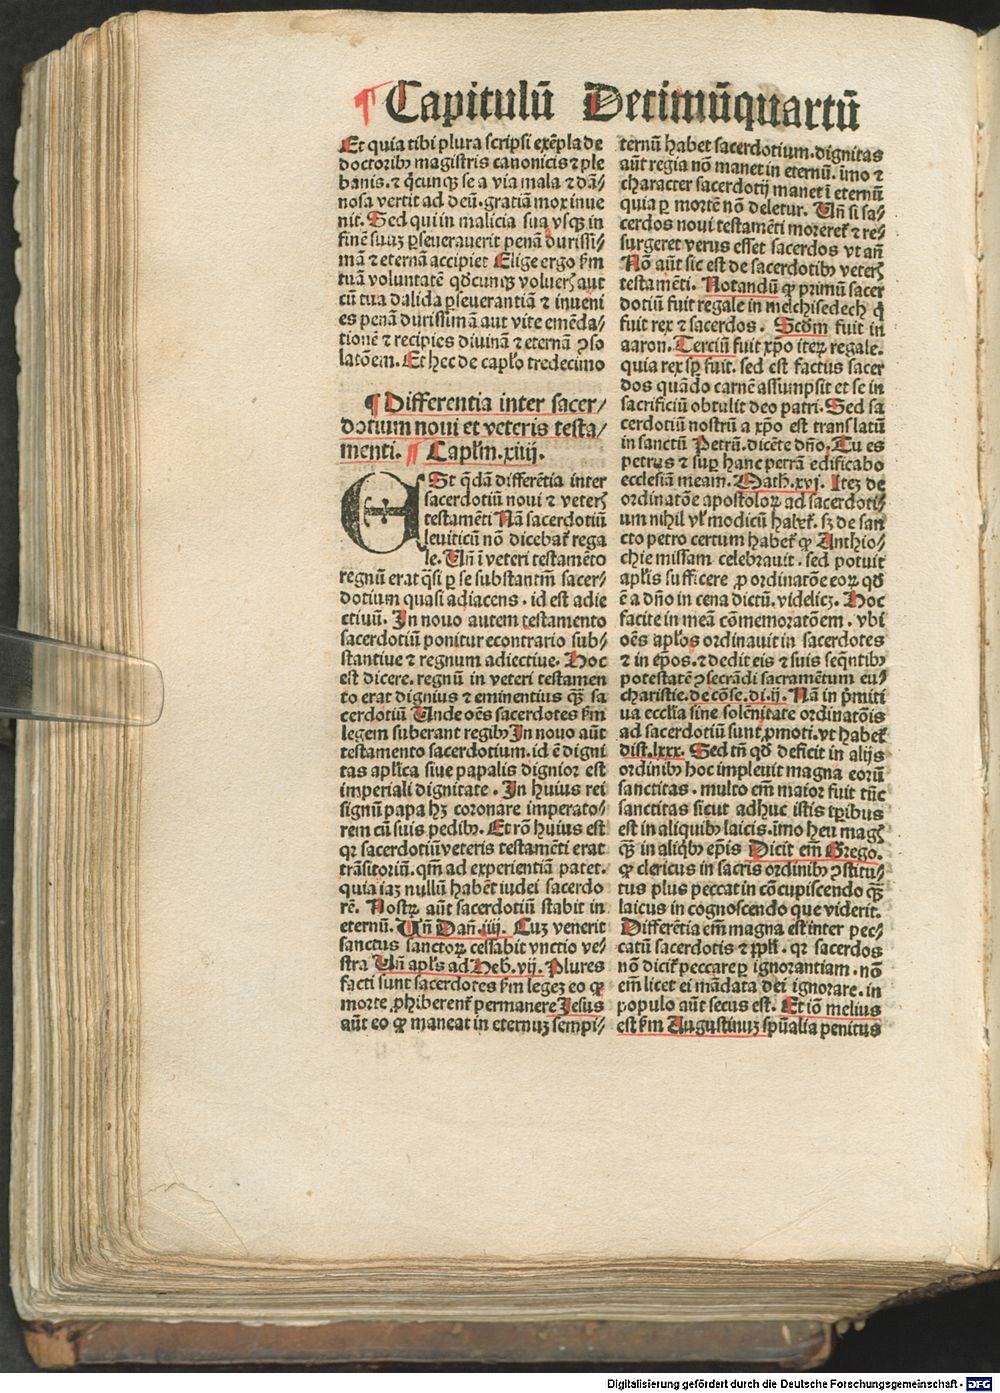 ¶ Capitulū Decimūquartū
Et quia tibi plura scripsi exēpla de
doctoribꝰ magistris canonicis ⁊ ple
banis. ⁊ qͥcunqꝫ se a via mala ⁊ dā-
nosa vertit ad deū. gratiam mox inue
nit. Sed qui in malicia sua vsqꝫ in
finē suuꝫ ꝑseuerauerit penā durissi-
mā ⁊ eternā accipiet Elige ergo ẜm
tuā voluntatē qd̄cunqꝫ volueꝝ aut
cū tua dalida ꝑseuerantiā ⁊ inueni
es penā durissimā aut vite emēda-
tionē ⁊ recipies diuinā ⁊ eternā ꝯso
latōem. Et hec de capl'o tredecimo
¶ Differentia inter sacer/
dotium noui et veteris testa/
menti. ¶ Capl'm. xiiij.
ESt qͥdā differētia inter
sacerdotiū noui ⁊ veterꝭ
testamēti Nā sacerdotiū
leuiticū nō dicebat̉ rega
le. Vn̄ ī veteri testamēto
regnū erat qͣsi ꝑ se substantīn sacer-
dotium quasi adiacens. id est adie
ctiuū. In nouo autem testamento
sacerdotiū ponitur econtrario sub-
stantiue ⁊ regnum adiectiue. Hoc
est dicere. regnū in veteri testamen
to erat dignius ⁊ eminentius qꝫ̄ sa
cerdotiū Unde oēs sacerdotes ẜm
legem suberant regibꝰ In nouo aūt
testamento sacerdotium. id ē digni
tas apl'ica siue papalis dignior est
imperiali dignitate. In huius rei
signū papa hꝫ coronare imperato-
rem cū suis pedibꝰ. Et rō huius est
qꝛ sacerdotiū veteris testamēti erat
trāsitoriū. qm̄ ad experientiā patet.
quia iaꝫ nullū habēt iudei sacerdo
tē. Nostꝝ aūt sacerdotiū stabit in
eternū. Un̄ Dan̄. iiij. Cuꝫ venerit
sanctus sanctoꝝ cessabit vnctio ve-
stra Un̄ apl's ad Heb. vij. Plures
facti sunt sacerdotes ẜm legeꝫ eo ꝙ
morte ꝓhiberent̉ permanere Jesus
aūt eo ꝙ maneat in eternuꝫ sempi-
ternū habet sacerdotium. dignitas
aūt regia nō manet in eternū. īmo ⁊
character sacerdotij manet ī eternū
quia ꝑ mortē nō deletur. Un̄ si sa-
cerdos noui testamēti moreret̉ ⁊ re-
surgeret verus esset sacerdos vt an̄
Nō aūt sic est de sacerdotibꝰ veterꝭ
testamēti. Notandū ꝙ primū sacer
dotiū fuit regale in melchisedech qͥ
fuit rex ⁊ sacerdos. Scd̄m fuit in
aaron. Terciū fuit xp̄o iteꝝ regale.
quia rex sp̄ fuit. sed est factus sacer
dos quādo carnē assumpsit et se in
sacrificiū obtulit deo patri. Sed sa
cerdotiū nostrū a xp̄o est translatū
in sanctū Petrū. dicēte dn̄o. Tu es
petrus ⁊ suꝑ hanc petrā edificabo
ecclesiā meam. Math. xvj. Iteꝫ de
ordinatōe apostoloꝝ ad sacerdoti-
um nihil vl' modicū habet̉. sꝫ de san
cto petro certum habet̉ ꝙ Anthio-
chie missam celebrauit. sed potuit
apl'is sufficere ꝓ ordinatōe eoꝝ qd̄
ē a dn̄o in cena dictū. videlicꝫ. Hoc
facite in meā cōmemoratōem. vbi
oēs apl'os ordinauit in sacerdotes
⁊ in ep̄os. ⁊ dedit eis ⁊ suis seqn̄tibꝰ
potestatē ꝯsecrādi sacramētum eu-
charistie. de cōse. di. ij. Nā in pͥmiti
ua eccl'ia sine solēnitate ordinatōis
ad sacerdotiū sunt ꝓmoti. vt habet̉
dist. lxxx. Sed tn̄ qd̄ deficit in alijs
ordinibꝰ hoc impleuit magna eorū
sanctitas. multo em̄ maior fuit tūc
sanctitas sicut adhuc istis tꝑibus
est in aliquibꝰ laicis. īmo heu magꝭ
qꝫ̄ in aliqͥbꝰ ep̄is Dicit em̄ Grego.
ꝙ clericus in sacris ordinibꝰ ꝯstitu-
tus plus peccat in cōcupiscendo qꝫ̄
laicus in cognoscendo que viderit.
Differētia em̄ magna est inter pec-
catū sacerdotis ⁊ ppl'i. qꝛ sacerdos
nō dicit̉ peccare ꝑ ignorantiam. nō
em̄ licet ei mādata dei ignorare. in
populo aūt secus est. Et iō melius
est ẜm Augustinuꝫ spūalia penitus
Digitalisierung gefördert durch die Deutsche Forschungsgemeinschaft - DFG